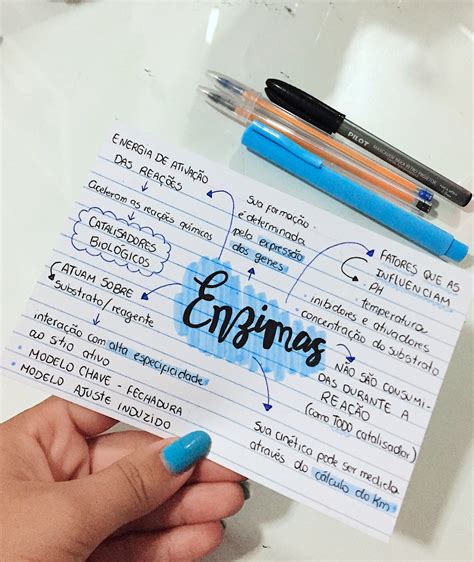 ENERGIA DE ATIVAÇÃO
DAS REAÇÕES
Aceleram as reações químicas
CATALISADORES
BIOLÓGICOS
ATUAM SOBRE
substrato/reagente
interação com alta especificidade
ao sítio ativo
• MODELO CHAVE - FECHADURA
• MODELO AJUSTE INDUZIDO
Sua formação
é determinada
pela expressão
dos genes
Enzimas
FATORES QUE AS
INFLUENCIAM
• PH
• temperatura
• inibidores e ativadores
• concentração do substrato
NÃO SÃO CONSUMI-
DAS DURANTE A
REAÇÃO
(como TODO catalisador)
Sua cinética pode ser medida
através do cálculo do Km
PILOT